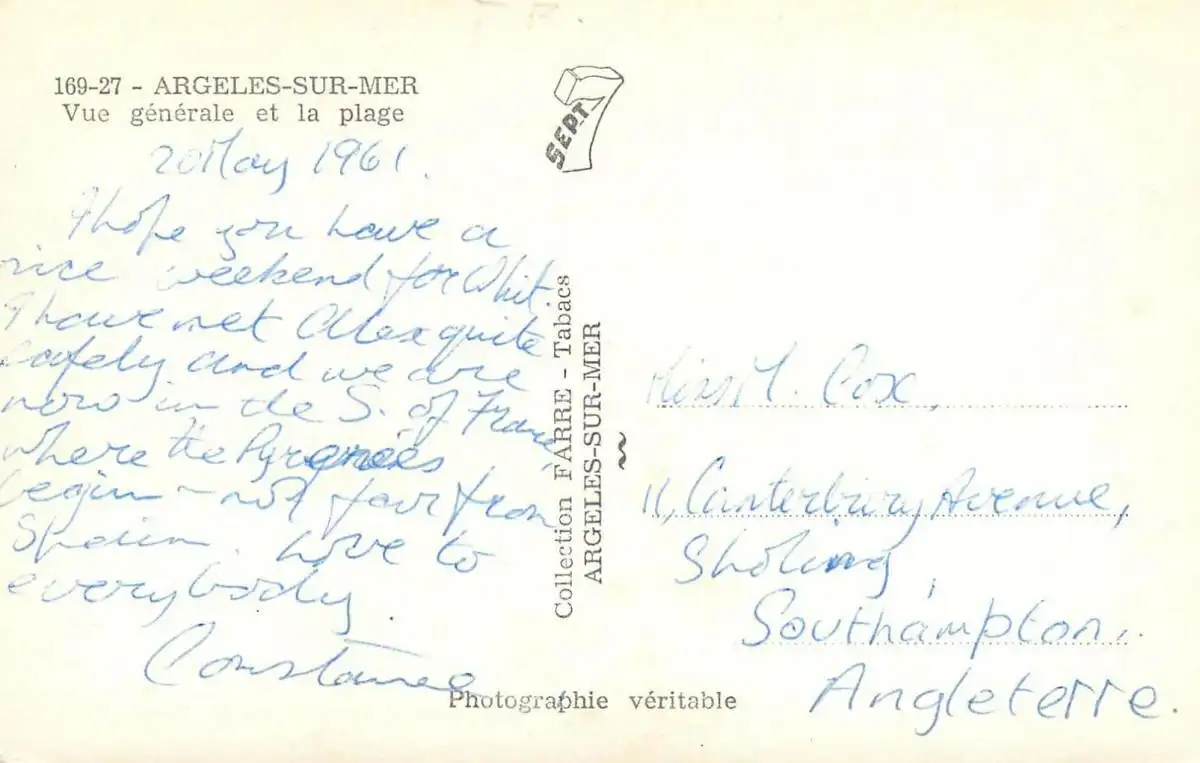 169-27 - ARGELES-SUR-MER
Vue générale et la plage
20 May 1961.
I hope you have a
nice weekend for Whit.
I have met Alex quite
safely and we are
now in the S. of France
where the Pyrenées
begin - not far from
Spain. Love to
everybody.
Constance
SEPT 7
Collection FARRE - Tabacs
ARGELES-SUR-MER
Photographie véritable
Miss Cox,
11, Canterbury Avenue,
Sholing,
Southampton.
Angleterre.